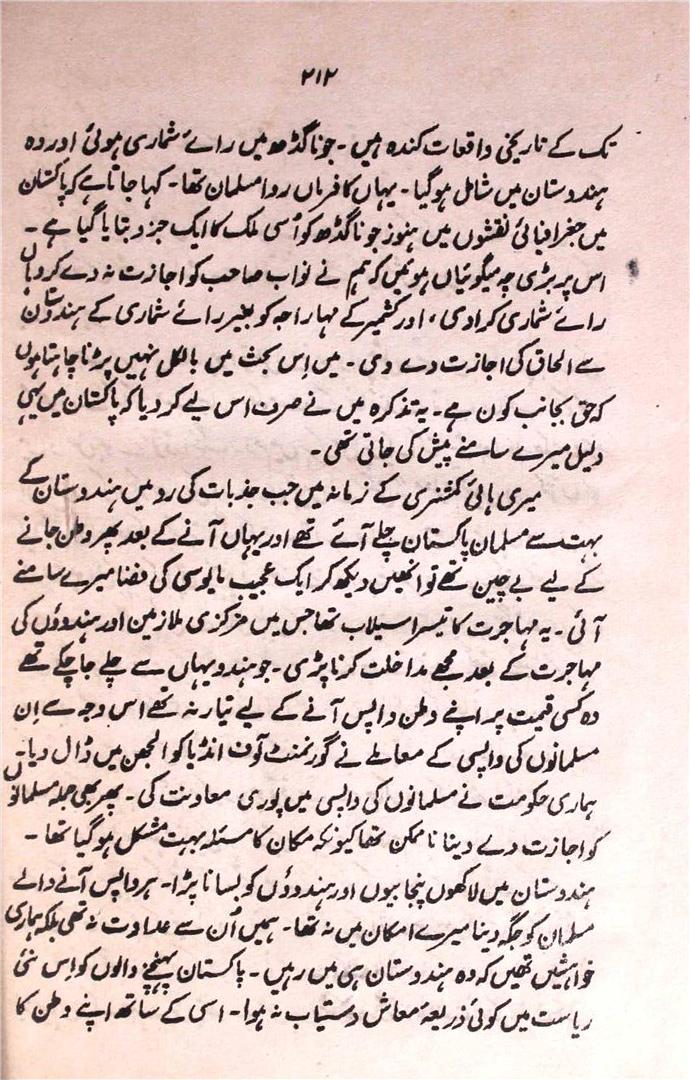 ۲۱۲
تک کے تاریخی واقعات کندہ ہیں۔ جوناگڈھ میں رائے شماری ہوئی اور وہ
ہندوستان میں شامل ہوگیا۔ یہاں کا فرماں روا مسلمان تھا۔ کہا جاتا ہے کہ پاکستان
میں جغرافیائی نقشوں میں ہنوز جوناگڈھ کو اُسی ملک کا ایک جزو بتایا گیا ہے۔
اس پر بڑی چہ میگوئیاں ہوئیں کہ ہم نے نواب صاحب کو اجازت نہ دے کر وہاں
رائے شماری کرادی، اور کشمیر کے مہاراجہ کو بغیر رائے شماری کے ہندوستان
سے الحاق کی اجازت دے دی۔ میں اِس بحث میں بالکل نہیں پڑنا چاہتا ہوں
کہ حق بجانب کون ہے۔ یہ تذکرہ میں نے صرف اس لیے کر دیا کہ پاکستان میں یہی
دلیل میرے سامنے پیش کی جاتی تھی۔
میری ہائی کمشنری کے زمانہ میں جب جذبات کی رو میں ہندوستان کے
بہت سے مسلمان پاکستان چلے آئے تھے اور یہاں آنے کے بعد پھر وطن جانے
کے لیے بے چین تھے تو انھیں دیکھ کر ایک عجیب مایوسی کی فضا میرے سامنے
آئی۔ یہ مہاجرت کا تیسرا سیلاب تھا جس میں مرکزی ملازمین اور ہندوؤں کی
مہاجرت کے بعد مجھے مداخلت کرنا پڑی۔ جو ہندو یہاں سے چلے جا چکے تھے
وہ کسی قیمت پر اپنے وطن واپس آنے کے لیے تیار نہ تھے اس وجہ سے اِن
مسلمانوں کی واپسی کے معاملے نے گورنمنٹ آوف انڈیا کو الجھن میں ڈال دیا۔
ہماری حکومت نے مسلمانوں کی واپسی میں پوری معاونت کی۔ پھر بھی جملہ مسلمانوں
کو اجازت دے دینا ناممکن تھا کیونکہ مکان کا مسئلہ بہت مشکل ہو گیا تھا۔
ہندوستان میں لاکھوں پنجابیوں اور ہندوؤں کو بسانا پڑا۔ ہر واپس آنے والے
مسلمان کو جگہ دینا میرے امکان میں نہ تھا۔ ہمیں اُن سے عداوت نہ تھی بلکہ ہماری
خواہشیں تھیں کہ وہ ہندوستان ہی میں رہیں۔ پاکستان پہنچنے والوں کو اِس نئی
ریاست میں کوئی ذریعۂ معاش دستیاب نہ ہوا۔ اسی کے ساتھ اپنے وطن کا